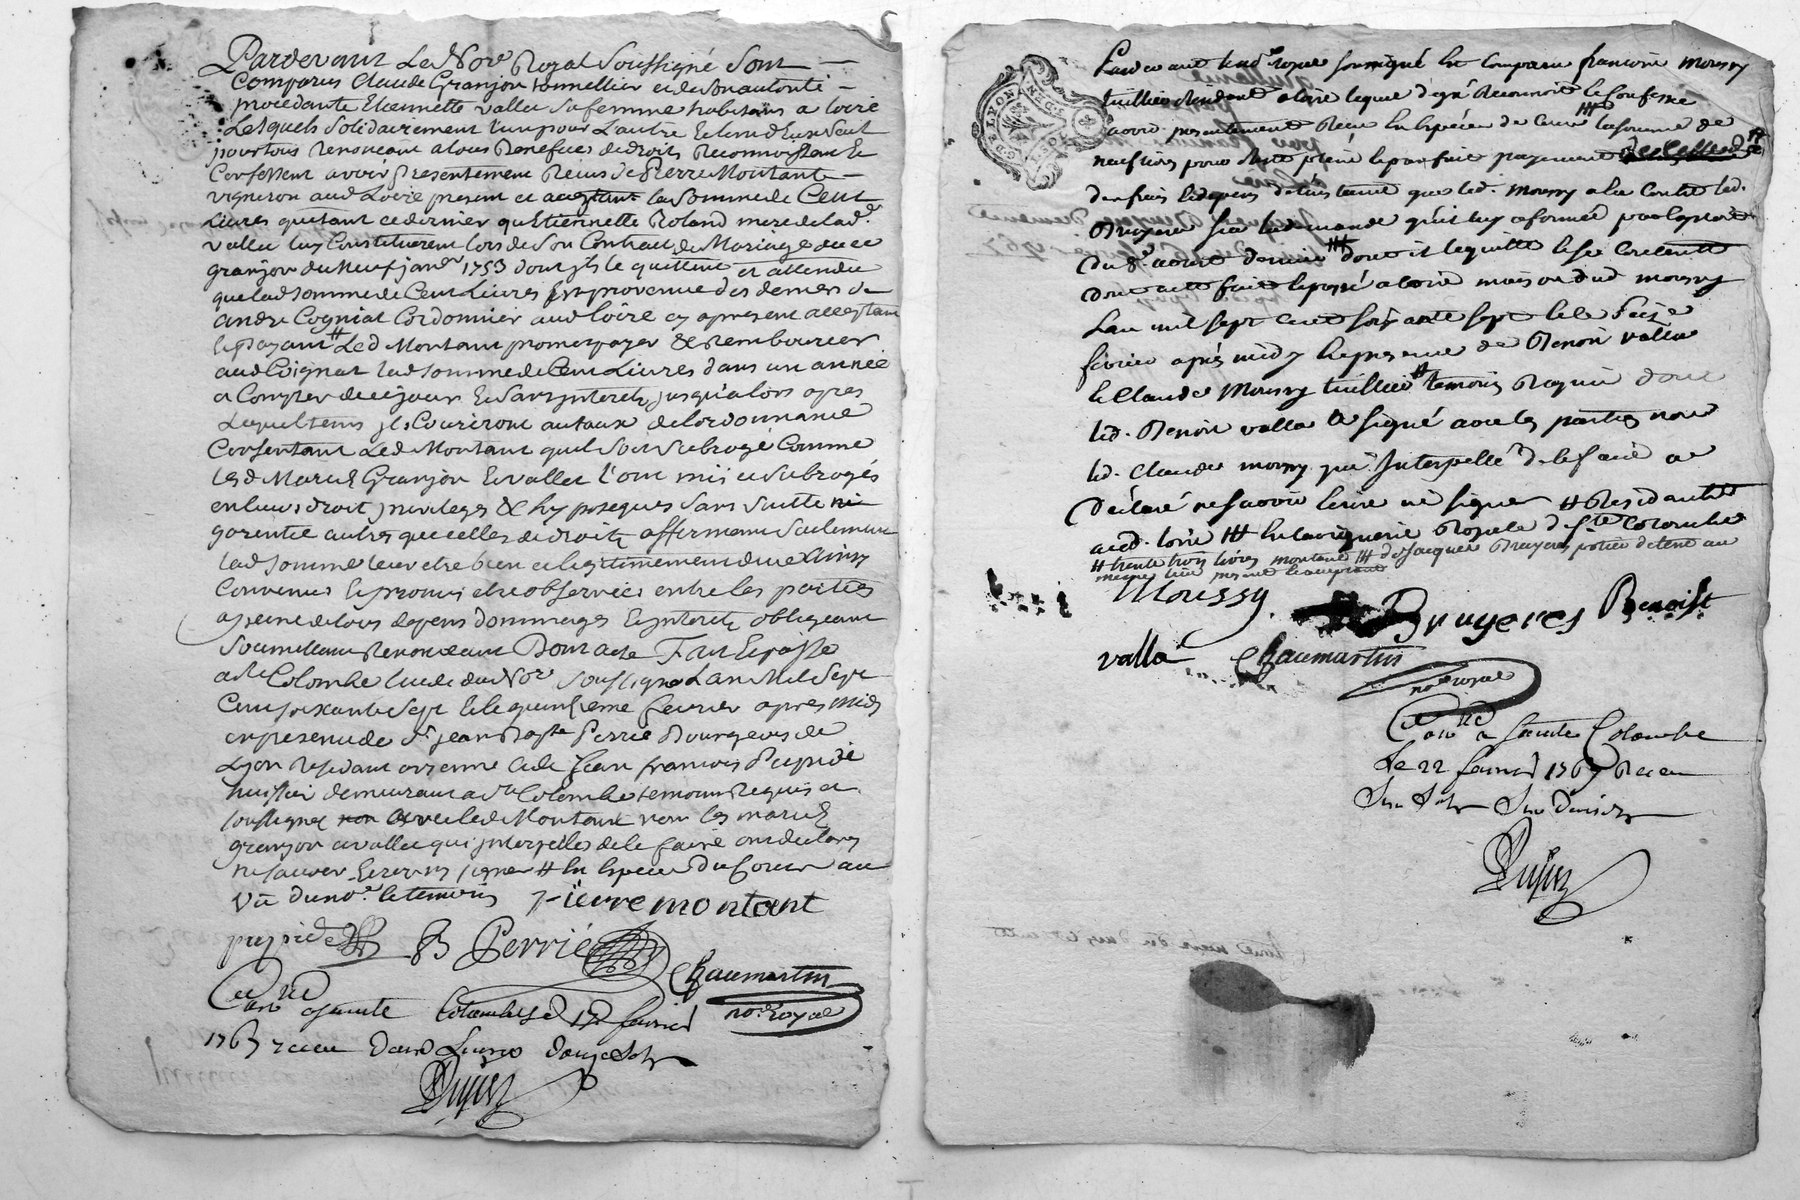 Pardevant Le Nore Royal Soussigné Sont
Comparus Claude Granjon tonnellier et de Son autorité
procédante Etiennette vallet Sa femme habitans a Loire
Lesquels Solidairement l'un pour L'autre Et l'un d'Eux Seul
pour tous Renonceant a tous Benefices de droits Reconnoissent Et
Confessent avoir presentement Receus de Pierre Montant
vigneron aud Loire present et acceptant la Somme de Cent
Livres que tant ce dernier qu'Etiennette Roland mere de lad.
vallet luy Constituerent lors de Son Contrat de Mariage avec
granjon du Neuf janer 1753 dont ils le quittent et attendu
que lad Somme de Cent Livres Est provenue des deniers de
andre Cogniat Cordonnier aud loire cy apresent acceptant
# Led Montant promet payer & Rembourcer
aud Coignat lad Somme de Cent Livres dans un année
a Compter de ce jour Et Sans interets jusqu'alors apres
Lequel tems ils Couriront au taux de l'ordonnance
Consentant Led Montant quil Soit Subrogé Comme
Lesd Mariés Granjon Et vallet l'ont mis et Subrogés
en leurs droit privileges & hypoteques Sans Suitte ni
garentie autres que celles de droits affermant Seulement
lad Somme leur etre bien et legitimement due Ainsy
Convenus Et promis etre observéc entre les parties
a peine de tous depens dommages Et interets obligeant
Soumettant Renonceant Dont acte Fait Et passé
a Ste Colombe Etude du Nore Soussigné L'an Mil Sept
Cent soixante Sept Et le quinzieme fevrier apres Midy
en presence de Sr jean Bapte Perrié Bourgeois de
Lyon residant a vienne Et de Jean francois Pupidé
huissier demeurant a Ste Colombe temoins Requis et
soussignez avec led Montant non les mariés
granjon et vallet qui interpellés de le faire ont declarés
ne sauoir Ecrire ny signer # En Espèces du Cours au
Vû dud nore. Et temoins Pierre montant
pupidé B Perrié
Chaumartin
nore Royal
Cont
a Sainte Colombe Le 17 fevrier
1767 receu Douze Sols
Pardevant le nore royal soussigné Est Comparu francois moussy
tuillier Residant a loire lequel de gré Reconnoit Et Confesse
avoir presentement Receu En Espèces de Cours la somme de
neuf livres pour Reste plein Et parfait payement
des frais Et depens de l'instance que led. moussy a Eu Contre led.
Bruyere Sur la demande qu'il luy a formée pardevant
du 8e aoust dernier dont il le quitte Et se Contente
Dont acte fait Et passé a loire maison dud moussy
L'an mil sept Cent soixante sept Et le Seize
février après midy En presence de Benoit valla
Et Claude Moussy tuillier # temoins Requis dont
led. Benoit valla a signé avec les parties non
led. Claude moussy qui Interpellé de le faire a
Déclaré ne sçavoir Ecrire ne signer # Residants
aud. loire ## En la viguerie Royale de Ste Colombe
# trente trois livres montant ## de Jacques Bruyeres potier d'etent au
meme lieu present Et acceptant
Moussy. Bruyeres Benoist
valla Chaumartin
nore royal
Cont
a Sainte Colombe
Le 22 fevrier 1767 Receu
Six Sols Six Deniers